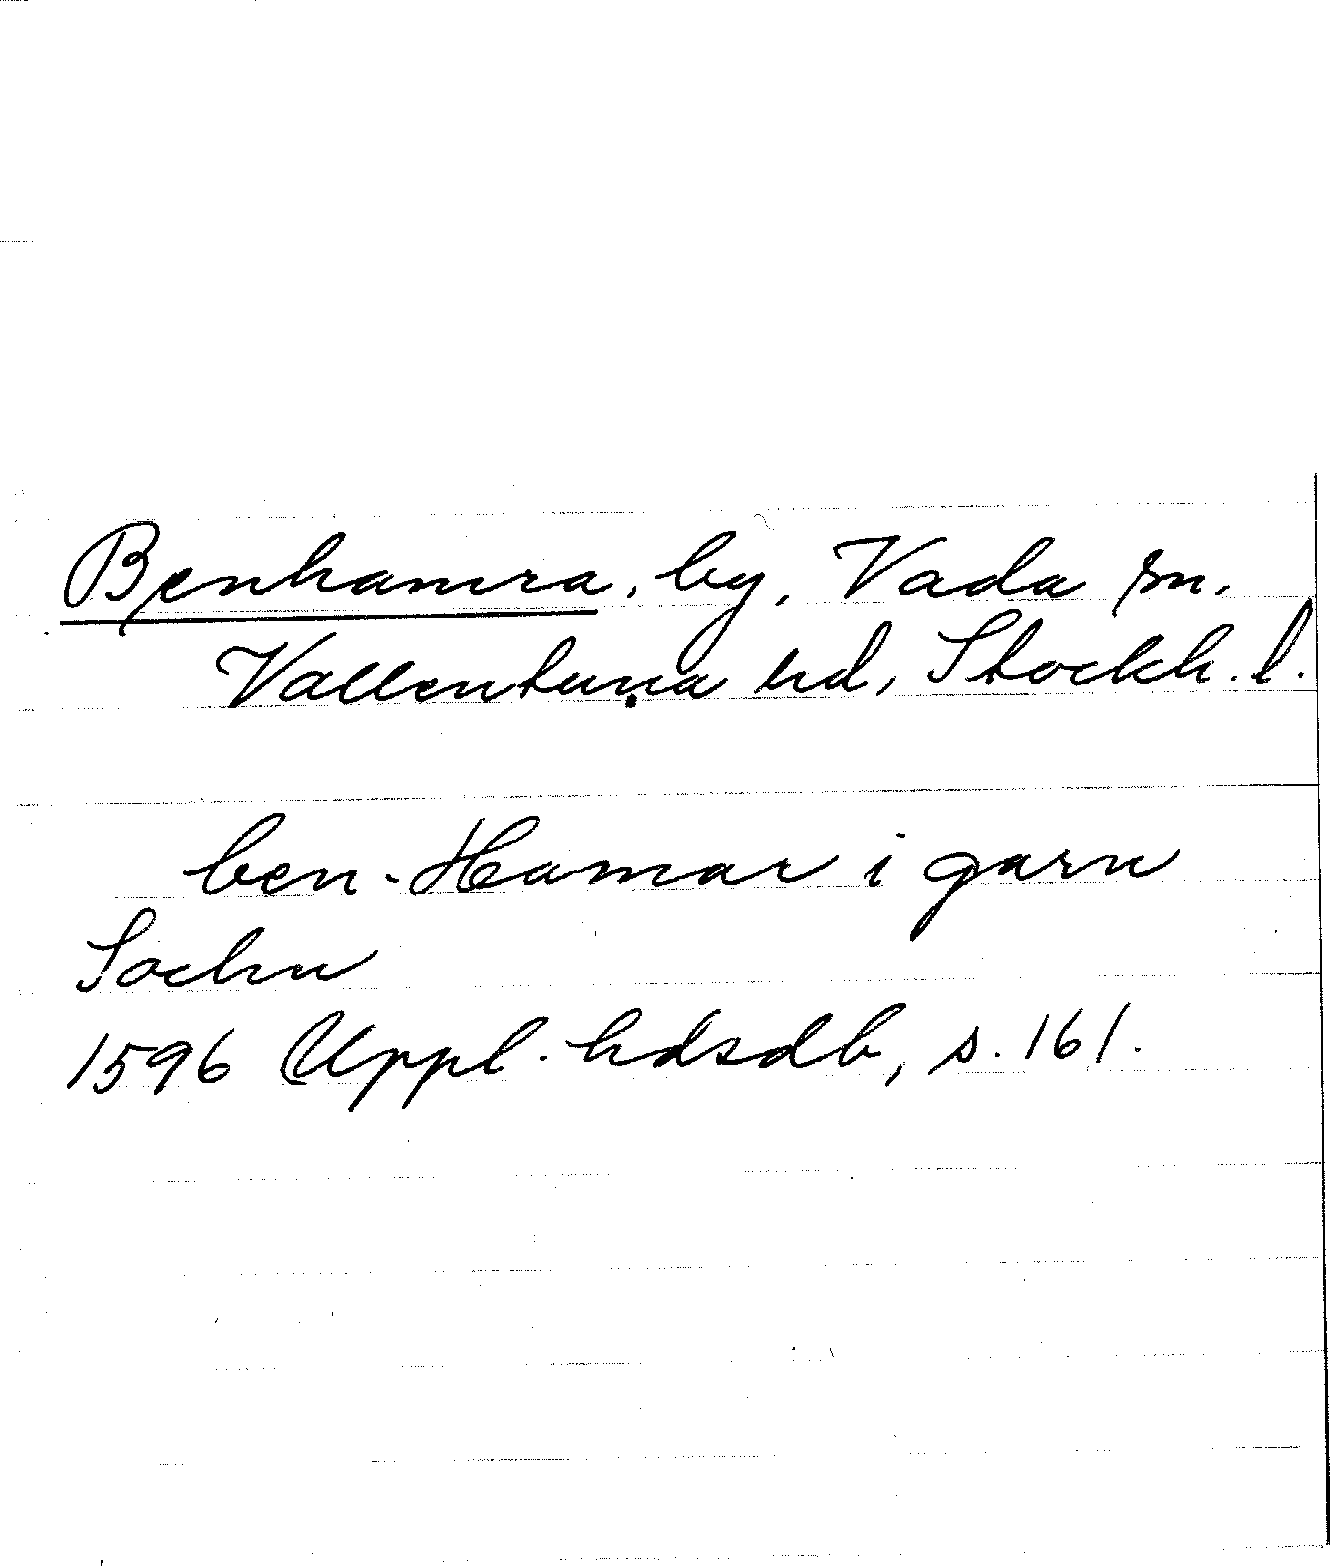 Benhamra, by, Vada sn,
Vallentuna hd, Stockh. l.
ben-Hamar i garn
Sochn
1596 Uppl. hdsdb, s. 161.